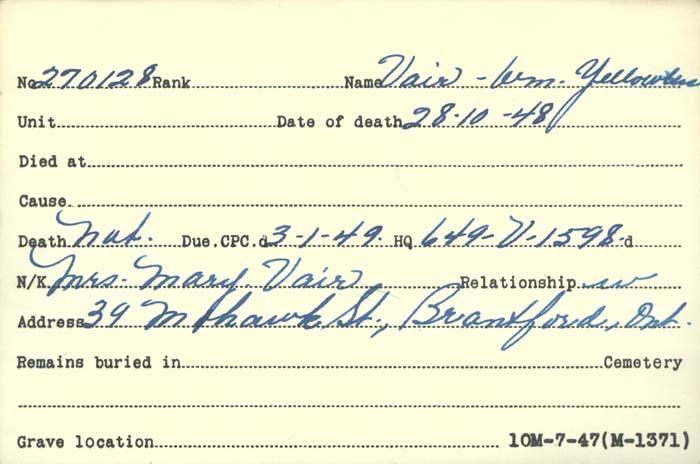 No 270128 Rank Name Vair - Wm. Yellowlees
Unit Date of death 28-10-48
Died at
Cause
Death Nat. Due.CPC.d 3-1-49. HQ 649-V-1598-d
N/K Mrs. Mary Vair Relationship w
Address 39 Mohawk St., Brantford, Ont.
Remains buried in Cemetery
Grave location 10M-7-47(M-1371)